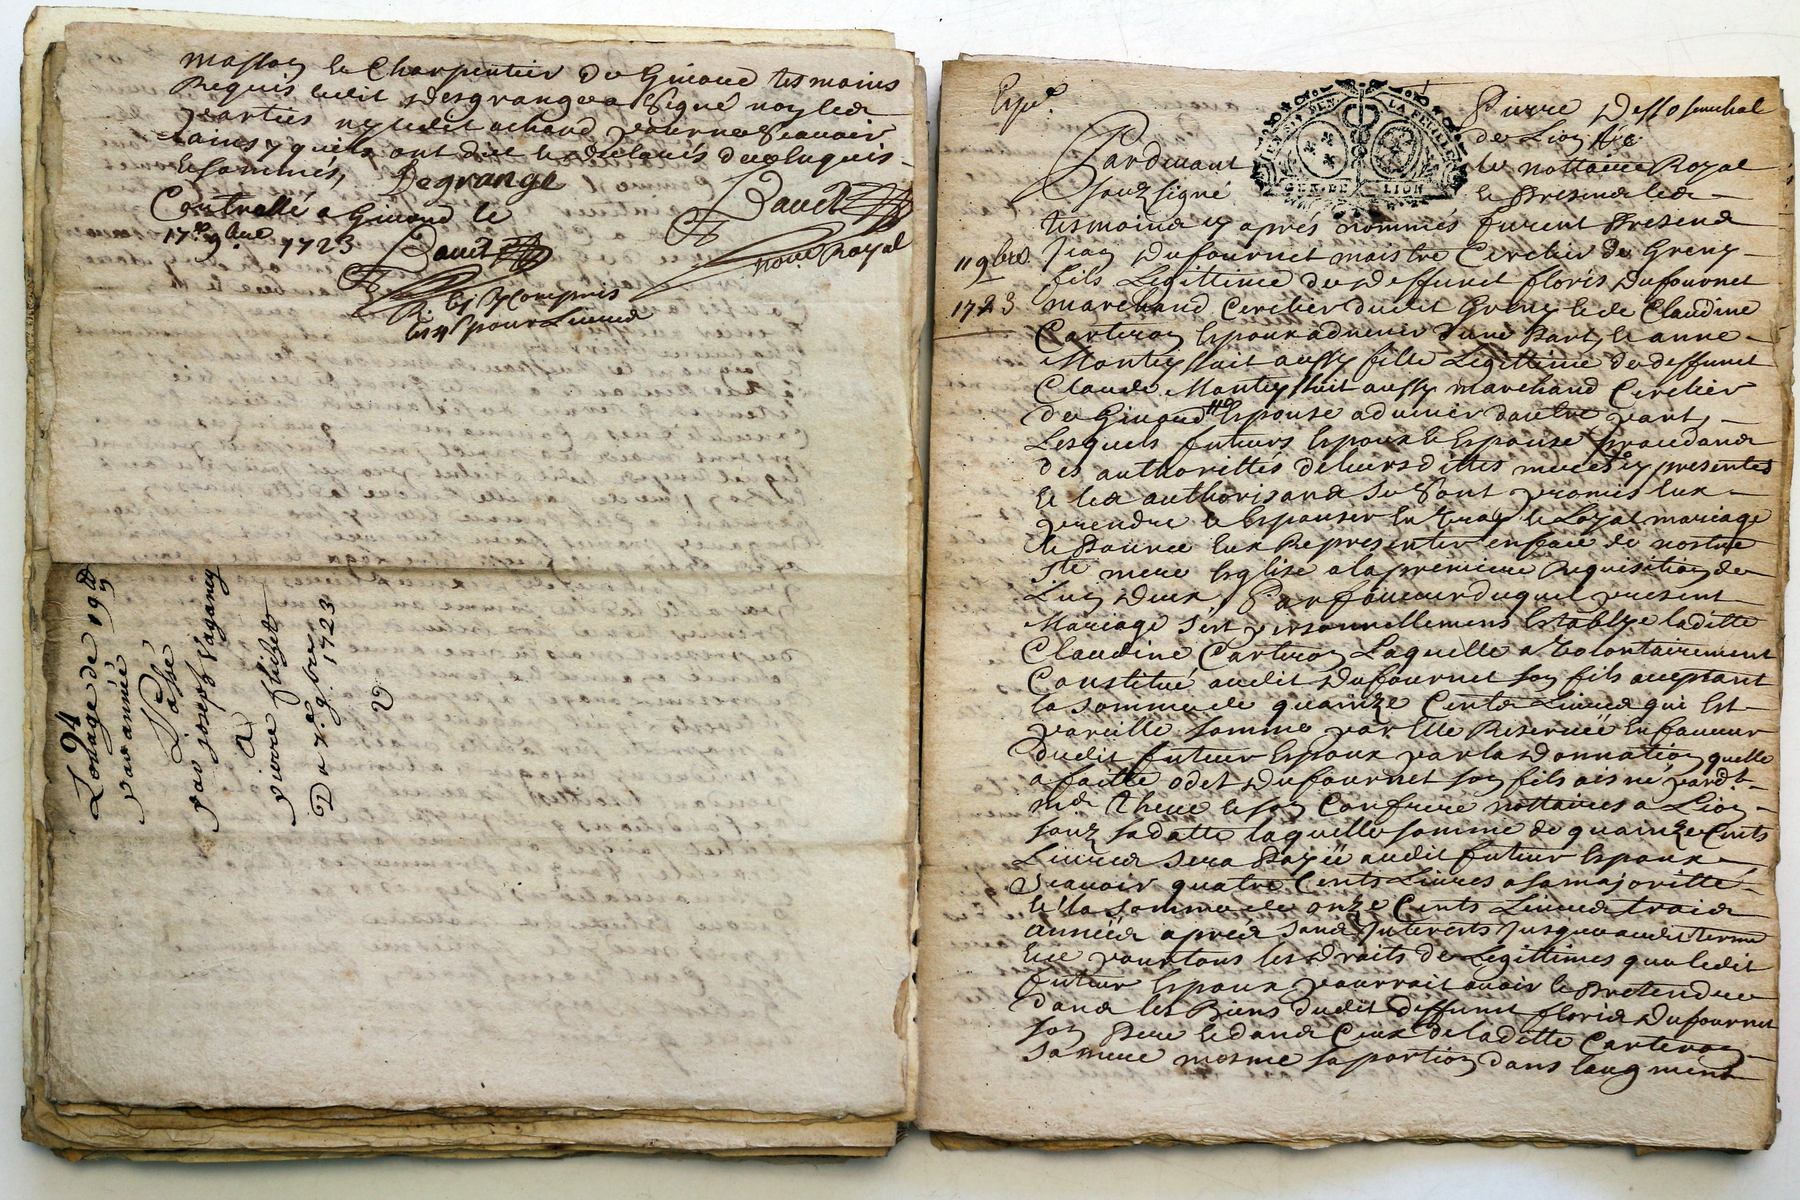 masson et Charpentier de Giuord tesmoins
Requis ledit Desgranges a signé non les
parties ny ledit achard pour ne scauoir
ainsy quils ont dit et declaré de ce Enquis
et sommés, Degrange
Baudt
Controllé a Giuord le
17e 9bre 1723
Baudt
nore Royal
R. Compris
pour
94
Louage de 19 #
par année
Passé
par joseph
a
pierre flichet
Du 7e 9bre
1723
Expé
GEN. DE LION
Pierre Desfosenechal
de Lion &c
Pardeuant le nottaire Royal
souz signé et Presens les
tesmoins cy aprés nommés furent Presens
11 9bre
1723
Jean Dufournet maistre Cerclier de Greny
fils Legittime de deffunct floris Dufournet
marchand Cerclier dudit Greny et de Claudine
Carteron Espoux aduenir d'une Part, et anne
dit aussy fille Legittime de deffunct
Claude dit aussy marchand Cerclier
de Giuord Espouse aduenir dautre part,
Lesquels futurs Espoux et Espouse procedans
des authorittés de leurs dittes meres icy presentes
et les authorisans se sont promis eux
prendre et Espouser En vray et Loyal mariage
et Pource Eux Representer en face de nostre
Ste mere Esglise a la premiere Requisition de
Lun Deux, En faueur duquel present
Mariage s'est personnellement Establye laditte
Claudine Carteron Laquelle a Volontairement
Constitué audit Dufournet son fils acceptant
la somme de quainze Cents Liures qui Est
pareille somme par Elle Reseruée En faueur
dudit futur Espoux par la Donnation quelle
a faitte odet Dufournet son fils aisné pard.t
me et son Confrere nottaires a Lion
souz sa datte laquelle somme de quainze Cents
Liures sera Payée audit futur Espoux
scauoir quatre Cents Liures a sa majoritté
et la somme de onze Cents Liures trois
années aprés sans Interests Jusques audit terme
Et ce pour tous les Droits de Legittimes que ledit
futur Espoux pourroit auoir et Pretendre
dans les Biens dudit deffunct floris Dufournet
son Pere et dans Ceux de laditte Carteron
sa mere mesme sa portion dans laugment